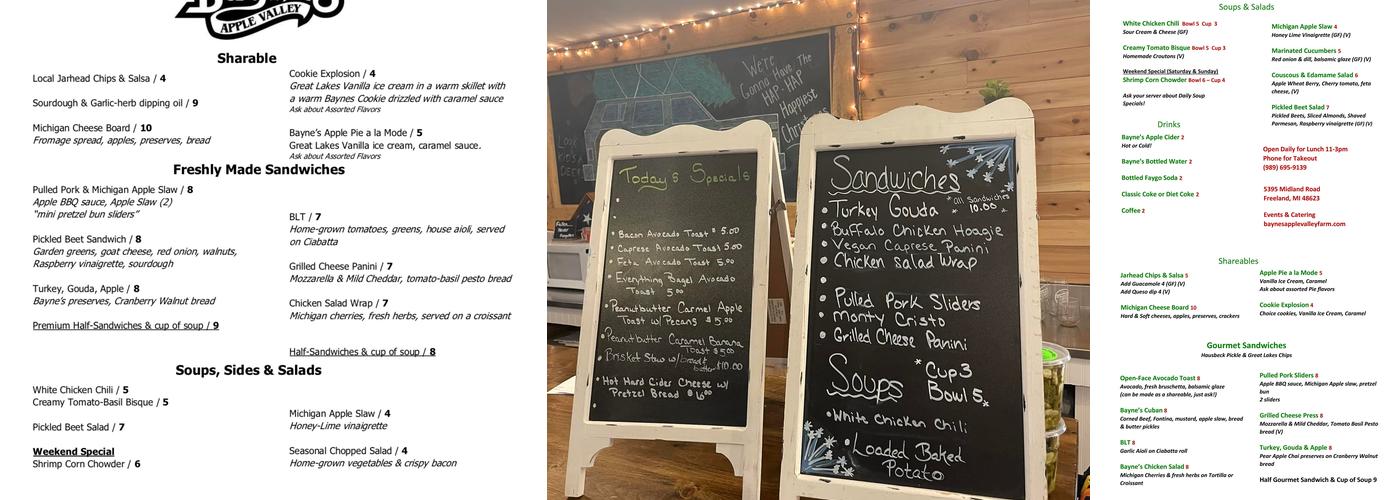 APPLE VALLEY
Sharable
Local Jarhead Chips & Salsa / 4
Sourdough & Garlic-herb dipping oil / 9
Michigan Cheese Board / 10
Fromage spread, apples, preserves, bread
Cookie Explosion / 4
Great Lakes Vanilla ice cream in a warm skillet with
a warm Baynes Cookie drizzled with caramel sauce
Ask about Assorted Flavors
Bayne's Apple Pie a la Mode / 5
Great Lakes Vanilla ice cream, caramel sauce.
Ask about Assorted Flavors
Freshly Made Sandwiches
Pulled Pork & Michigan Apple Slaw / 8
Apple BBQ sauce, Apple Slaw (2)
"mini pretzel bun sliders"
Pickled Beet Sandwich / 8
Garden greens, goat cheese, red onion, walnuts,
Raspberry vinaigrette, sourdough
Turkey, Gouda, Apple / 8
Bayne's preserves, Cranberry Walnut bread
Premium Half-Sandwiches & cup of soup / 9
BLT / 7
Home-grown tomatoes, greens, house aioli, served
on Ciabatta
Grilled Cheese Panini / 7
Mozzarella & Mild Cheddar, tomato-basil pesto bread
Chicken Salad Wrap / 7
Michigan cherries, fresh herbs, served on a croissant
Half-Sandwiches & cup of soup / 8
Soups, Sides & Salads
White Chicken Chili / 5
Creamy Tomato-Basil Bisque / 5
Pickled Beet Salad / 7
Weekend Special
Shrimp Corn Chowder / 6
Michigan Apple Slaw / 4
Honey-Lime vinaigrette
Seasonal Chopped Salad / 4
Home-grown vegetables & crispy bacon
We're
Gonna Have The
HAP-HAP
Happiest
Today's Specials
Bacon Avocado Toast $ 5.00
Caprese Avocado Toast 5.00
Feta Avocado Toast 5.00
Everything Bagel Avocado
Toast 5.00
Peanutbutter Carmel Apple
Toast w/ Pecans $ 5.00
Peanutbutter Caramel Banana
Toast $5.00
Brisket Stew w/ bread &
butter $10.00
Hot Hard Cider Cheese w/
Pretzel Bread $ 6.00
Sandwiches
*All Sandwiches
10.00*
Turkey Gouda
Buffalo Chicken Hoagie
Vegan Caprese Panini
Chicken Salad Wrap
Pulled Pork Sliders
Monty Cristo
Grilled Cheese Panini
Soups
*Cup 3
Bowl 5*
White Chicken Chili
Loaded Baked
Potato
Soups & Salads
White Chicken Chili Bowl 5 Cup 3
Sour Cream & Cheese (GF)
Creamy Tomato Bisque Bowl 5 Cup 3
Homemade Croutons (V)
Weekend Special (Saturday & Sunday)
Shrimp Corn Chowder Bowl 6 – Cup 4
Ask your server about Daily Soup
Specials!
Michigan Apple Slaw 4
Honey Lime Vinaigrette (GF) (V)
Marinated Cucumbers 5
Red onion & dill, balsamic glaze (GF) (V)
Couscous & Edamame Salad 6
Apple Wheat Berry, Cherry tomato, feta
cheese, (V)
Pickled Beet Salad 7
Pickled Beets, Sliced Almonds, Shaved
Parmesan, Raspberry vinaigrette (GF) (V)
Drinks
Bayne's Apple Cider 2
Hot or Cold!
Bayne's Bottled Water 2
Bottled Faygo Soda 2
Classic Coke or Diet Coke 2
Coffee 2
Open Daily for Lunch 11-3pm
Phone for Takeout
(989) 695-9139
5395 Midland Road
Freeland, MI 48623
Events & Catering
baynesapplevalleyfarm.com
Shareables
Jarhead Chips & Salsa 5
Add Guacamole 4 (GF) (V)
Add Queso dip 4 (V)
Michigan Cheese Board 10
Hard & Soft cheeses, apples, preserves, crackers
Apple Pie a la Mode 5
Vanilla Ice Cream, Caramel
Ask about assorted Pie flavors
Cookie Explosion 4
Choice cookies, Vanilla Ice Cream, Caramel
Gourmet Sandwiches
Hausbeck Pickle & Great Lakes Chips
Open-Face Avocado Toast 8
Avocado, fresh bruschetta, balsamic glaze
(can be made as a shareable, just ask!)
Bayne's Cuban 8
Corned Beef, Fontina, mustard, apple slaw, bread
& butter pickles
BLT 8
Garlic Aioli on Ciabatta roll
Bayne's Chicken Salad 8
Michigan Cherries & fresh herbs on Tortilla or
Croissant
Pulled Pork Sliders 8
Apple BBQ sauce, Michigan Apple slaw, pretzel
bun
2 sliders
Grilled Cheese Press 8
Mozzarella & Mild Cheddar, Tomato Basil Pesto
bread (V)
Turkey, Gouda & Apple 8
Pear Apple Chai preserves on Cranberry Walnut
bread
Half Gourmet Sandwich & Cup of Soup 9